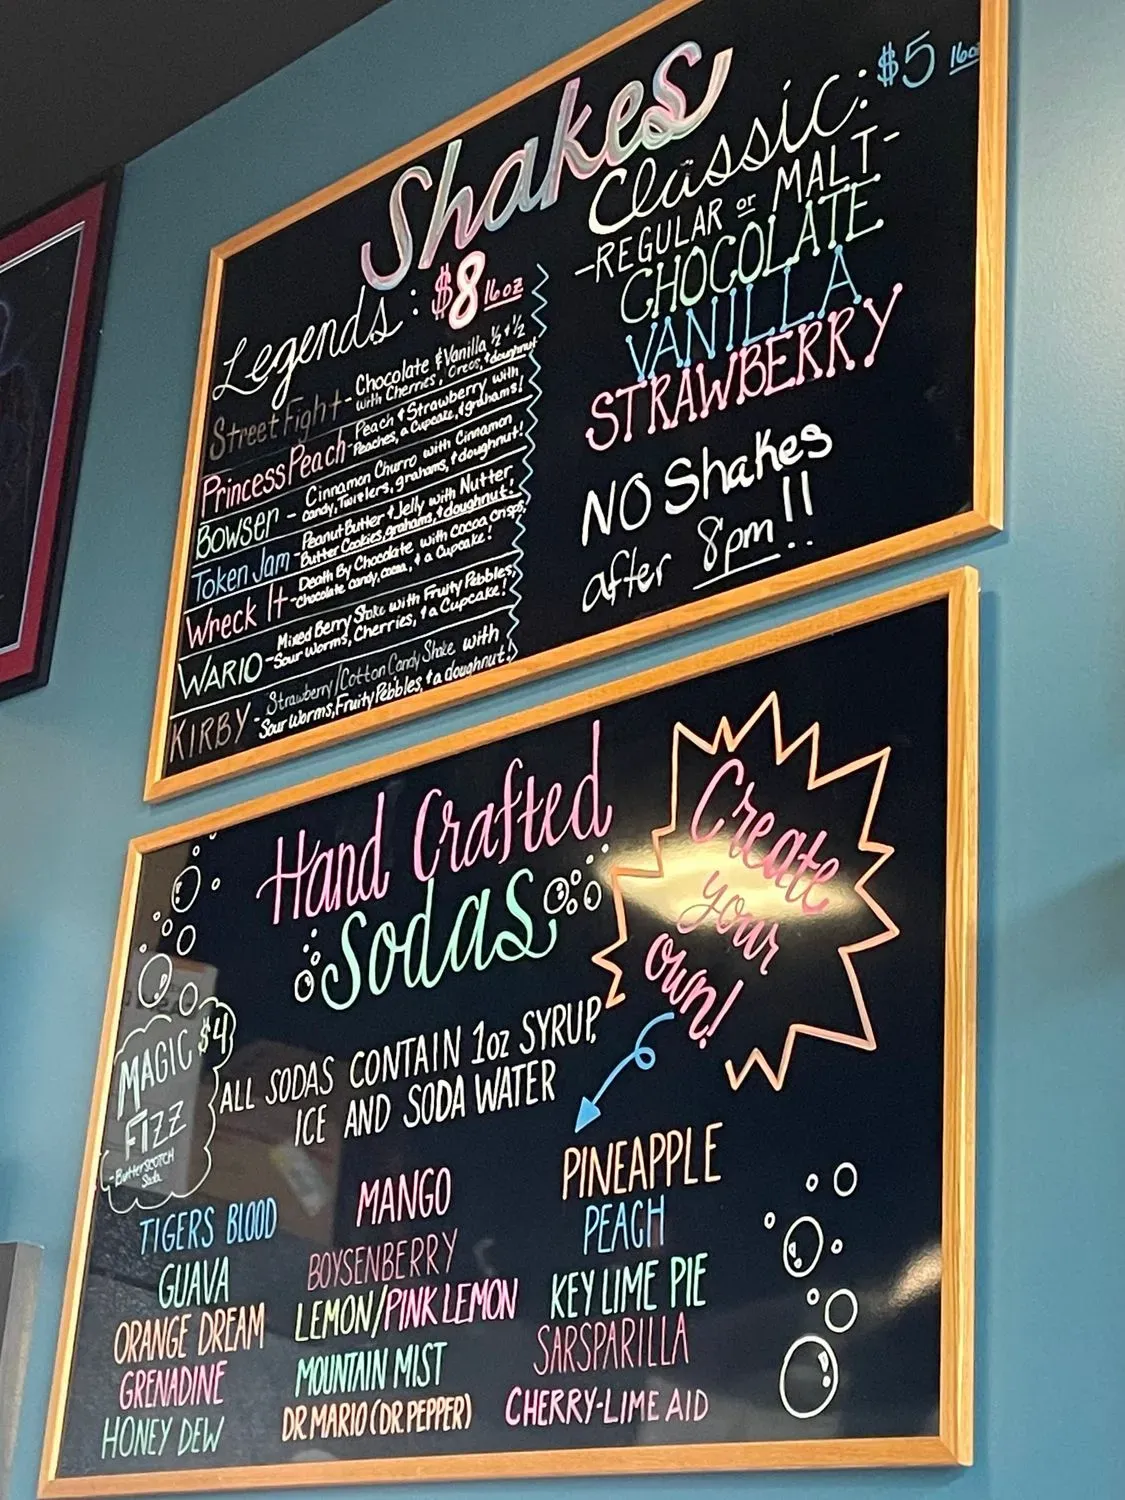 Shakes
Legends: $8 16oz
Street Fight - Chocolate & Vanilla ½ & ½
with Cherries, Oreos, & doughnut
Princess Peach - Peach & Strawberry with
Peaches, a Cupcake, & grahams!
Bowser - Cinnamon Churro with Cinnamon
Candy, Twizlers, grahams, & doughnut!
Token Jam - Peanut Butter & Jelly with Nutter
Butter Cookies, grahams, & doughnut!
Wreck It - Death By Chocolate with Cocoa Crisps,
Chocolate candy, cocoa, & a Cupcake!
WARIO - Mixed Berry Shake with Fruity Pebbles,
Sour Worms, Cherries, & a Cupcake!
KIRBY - Strawberry/Cotton Candy Shake with
Sour Worms, Fruity Pebbles, & a doughnut!
Classic: $5 16oz
-REGULAR or MALT-
CHOCOLATE
VANILLA
STRAWBERRY
NO Shakes
after 8pm!!
Hand Crafted
Sodas
Create
your
own!
MAGIC $4
FIZZ
-ButterSCOTCH
Soda
ALL SODAS CONTAIN 1oz SYRUP,
ICE AND SODA WATER
TIGERS BLOOD
GUAVA
ORANGE DREAM
GRENADINE
HONEY DEW
MANGO
BOYSENBERRY
LEMON/PINK LEMON
MOUNTAIN MIST
DR MARIO (DR. PEPPER)
PINEAPPLE
PEACH
KEY LIME PIE
SARSPARILLA
CHERRY-LIME AID